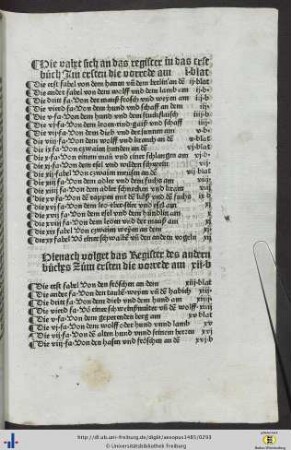 Die vahet sich an das register in das erste
büch Zum ersten die vorrede am i·blat
Die erst fabel von dem hanen vñ dem berlin an dē ij·blat
Die ander fabel von dem wolff vnd dem lamb am ij·b
Die dritt fa·von der mauß frosch vnd weyen am iij·
Die vierd fa·von dem hund vnd schaff an dem iij·
Die v·fa·von dem hund vnd dem stuckflaisch iiij·
Die vj·fa·von dem leoen rind gaiß vnd schaff
Die vij·fa·von dem dieb vnd der sunnen am v·b·
Die viij·fa·von dem wolff vnd kranch an dē
Die ix·fa·von zwaien hunden an dē vj·
Die x·fa·von einem man vnd einer schlangen am
Die xj·fa·von dem esel vnd wilden schwein
Die xij·fabel von zwaien meüsen an dē vij·blat
Die xiij·fa·von dem adler vnd dem fuchs am
Die xiiij·fa·von dem adler schnecken vnd
Die xv·fa·von dē rappen mit dē keß vñ dē fuchs
Die xvj·fa·von dem leo eber stier vnd esel am
Die xvij·fa·von dem esel vnd dem hündlin am
Die xviij·fa·von dem leoen vnd der mauß am
Die xix·fa·von dem weyen an dem
Die xx·fabel vō einer schwalbē vñ den andern vogeln xij
Hienach volget das Register des andern
büches Zum ersten die vorrede am xij·b
Die erst fabel von den fröschen am dem xiij·blat
Die ander fa·von den tauben weyen vñ dē habich
Die dritt fa·von dem dieb vnd dem hund am
Die vierd fa·vō einer schweinsmůter vñ dē wolff
Die v·fa·von dem geperenden berg am xv·blat
Die vj·fa·von dem wolff oder hund vnnd lamb xv
Die vij·fa·von dē alten hund vnnd seinem herren xvj
Die viij·fa·von den hasen vnd fröschen am dē xvj·b
http://dl.ub.uni-freiburg.de/diglit/aesopus1485/0293
© Universitätsbibliothek Freiburg
Baden-Württemberg